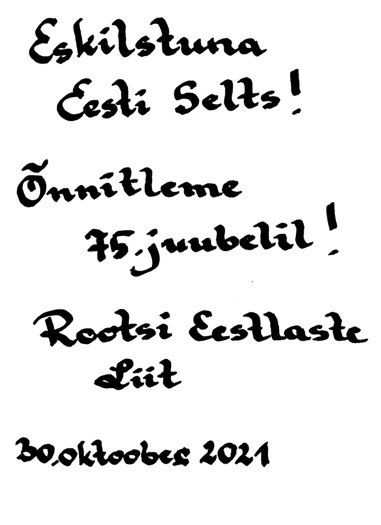 Eskilstuna
Eesti Selts!
Õnnitleme
75. juubelil!
Rootsi Eestlaste
Liit
30. oktoober 2021